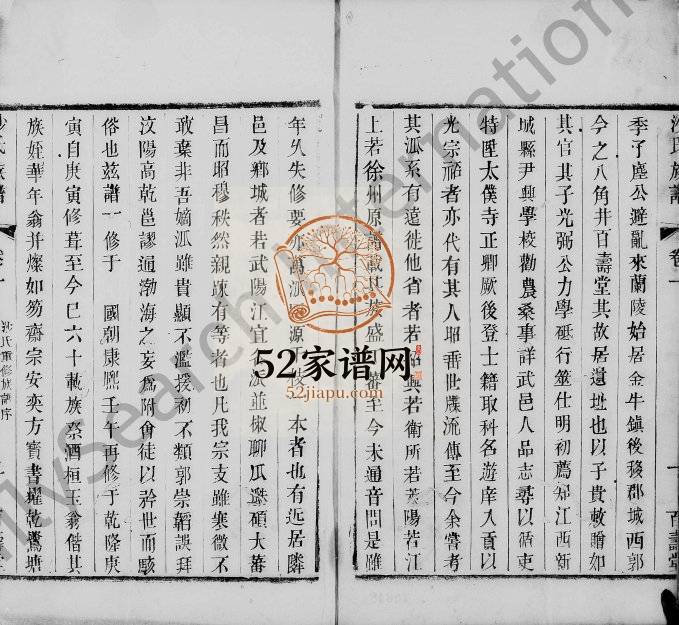 季子塵公避亂來蘭陵始居金牛鎮後移郡城西郭
今之八角井百壽堂其故居遺址也以子貴敕贈如
其官其子光弼公力學砥行筮仕明初薦知江西新
城縣尹興學校勸農桑事詳武邑人品志尋以循吏
特陞太僕寺正卿厥後登士籍取科名遊庠入貢以
光宗祧者亦代有其人昭垂世牒流傳至今余嘗考
其派系有遠徙他省者若 興若衛所若萊陽若江
上若徐州原 載其族盛 蕃至今未通音問是雖
年久失修要亦萬派 源 本者也有近居隣
邑及鄉城者若武陽江宜 派並椒聊瓜瓞碩大蕃
昌而昭穆秩然親疎有等者也凡我宗支雖寒微不
敢棄非吾嫡派雖貴顯不濫援初不類郭崇韜誤拜
汾陽高乾邕謬通渤海之妄為附會徒以矜世而駭
俗也茲譜一修于 國朝康熙壬午再修于乾隆庚
寅自庚寅修葺至今已六十載族祭酒桓玉翁偕其
族姪華年翁并燦如笏齋宗安奕方寶書擢乾鷺塘
沙氏重修族譜序
沙氏族譜
卷一
百壽堂
52家谱网
52jiapu.com